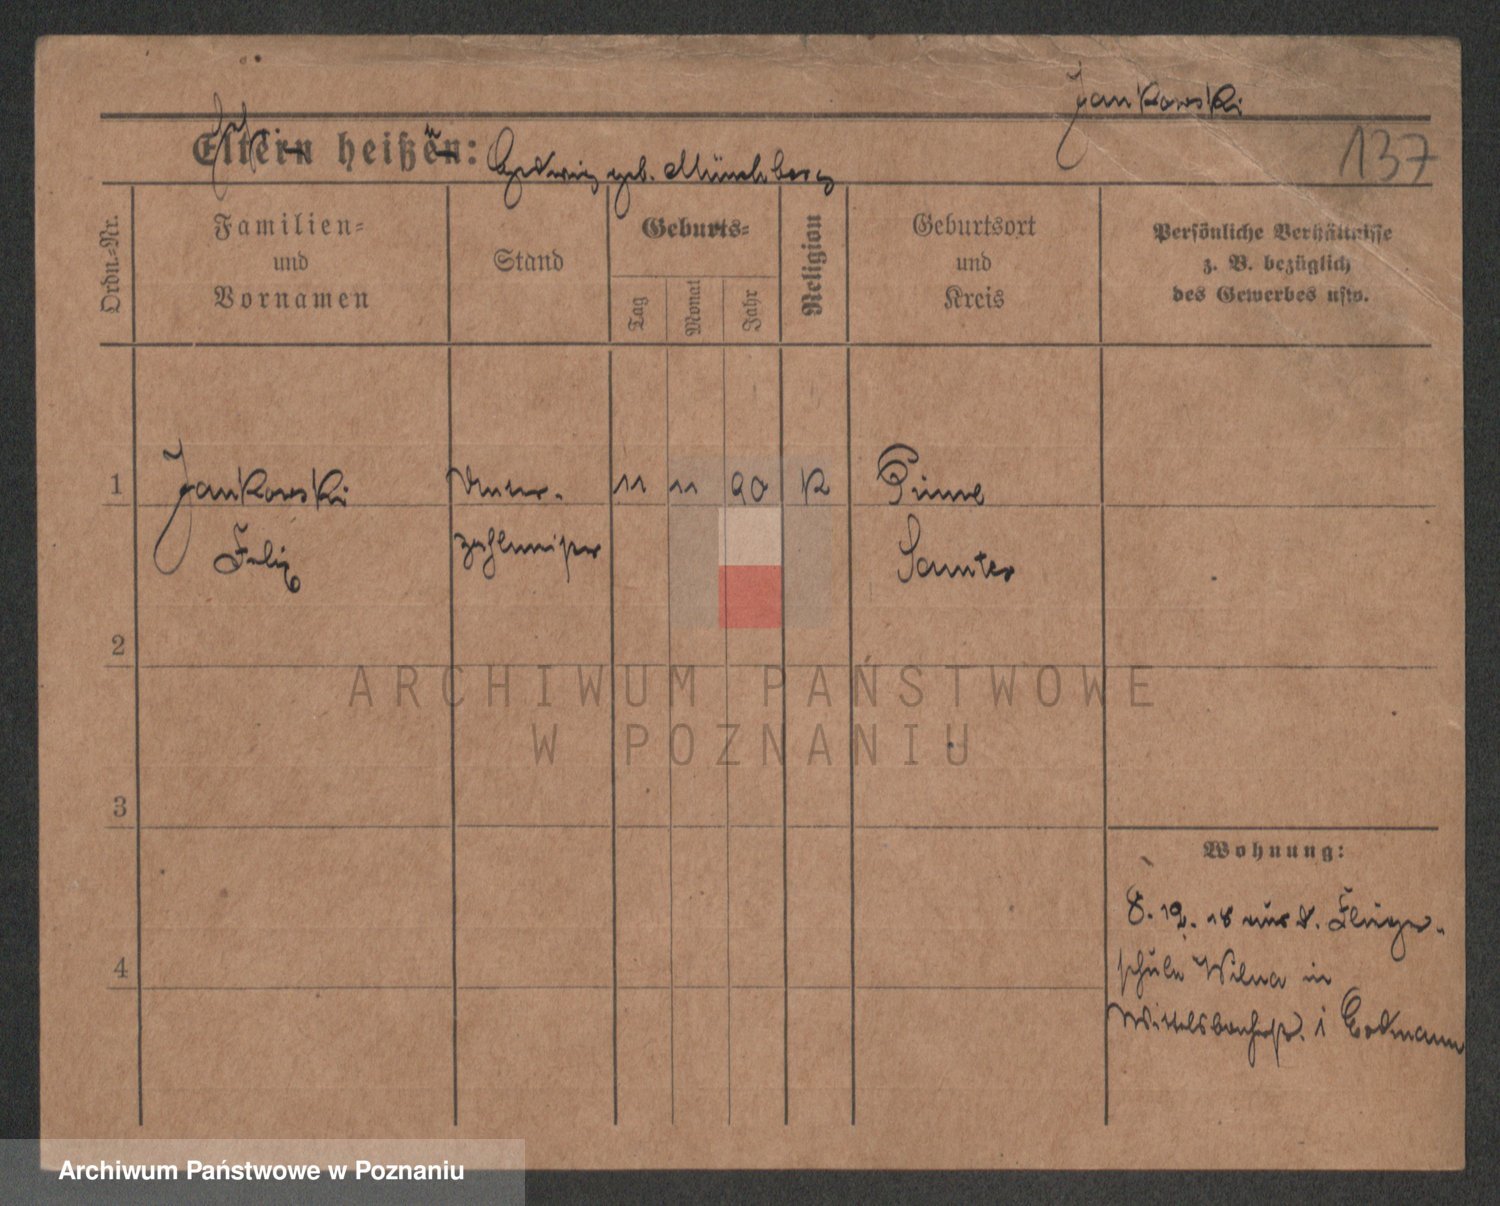 Jankowski
137
Eltern heißen: Hedwig geb. Münchberg
Ordn.-Nr.
Familien-
und
Vornamen
Stand
Geburts-
Tag
Monat
Jahr
Religion
Geburtsort
und
Kreis
Persönliche Verhältnisse
z. B. bezüglich
des Gewerbes usw.
1
Jankowski
Felix
Unter-
zahlmeister
11
11
90
K
Pinne
Samter
2
3
4
Wohnung:
8. 12. 18 aus d. Flieger-
schule Wilna in
Wittelsbacherstr. 1 Erdmann
ARCHIWUM PAŃSTWOWE
W POZNANIU
Archiwum Państwowe w Poznaniu